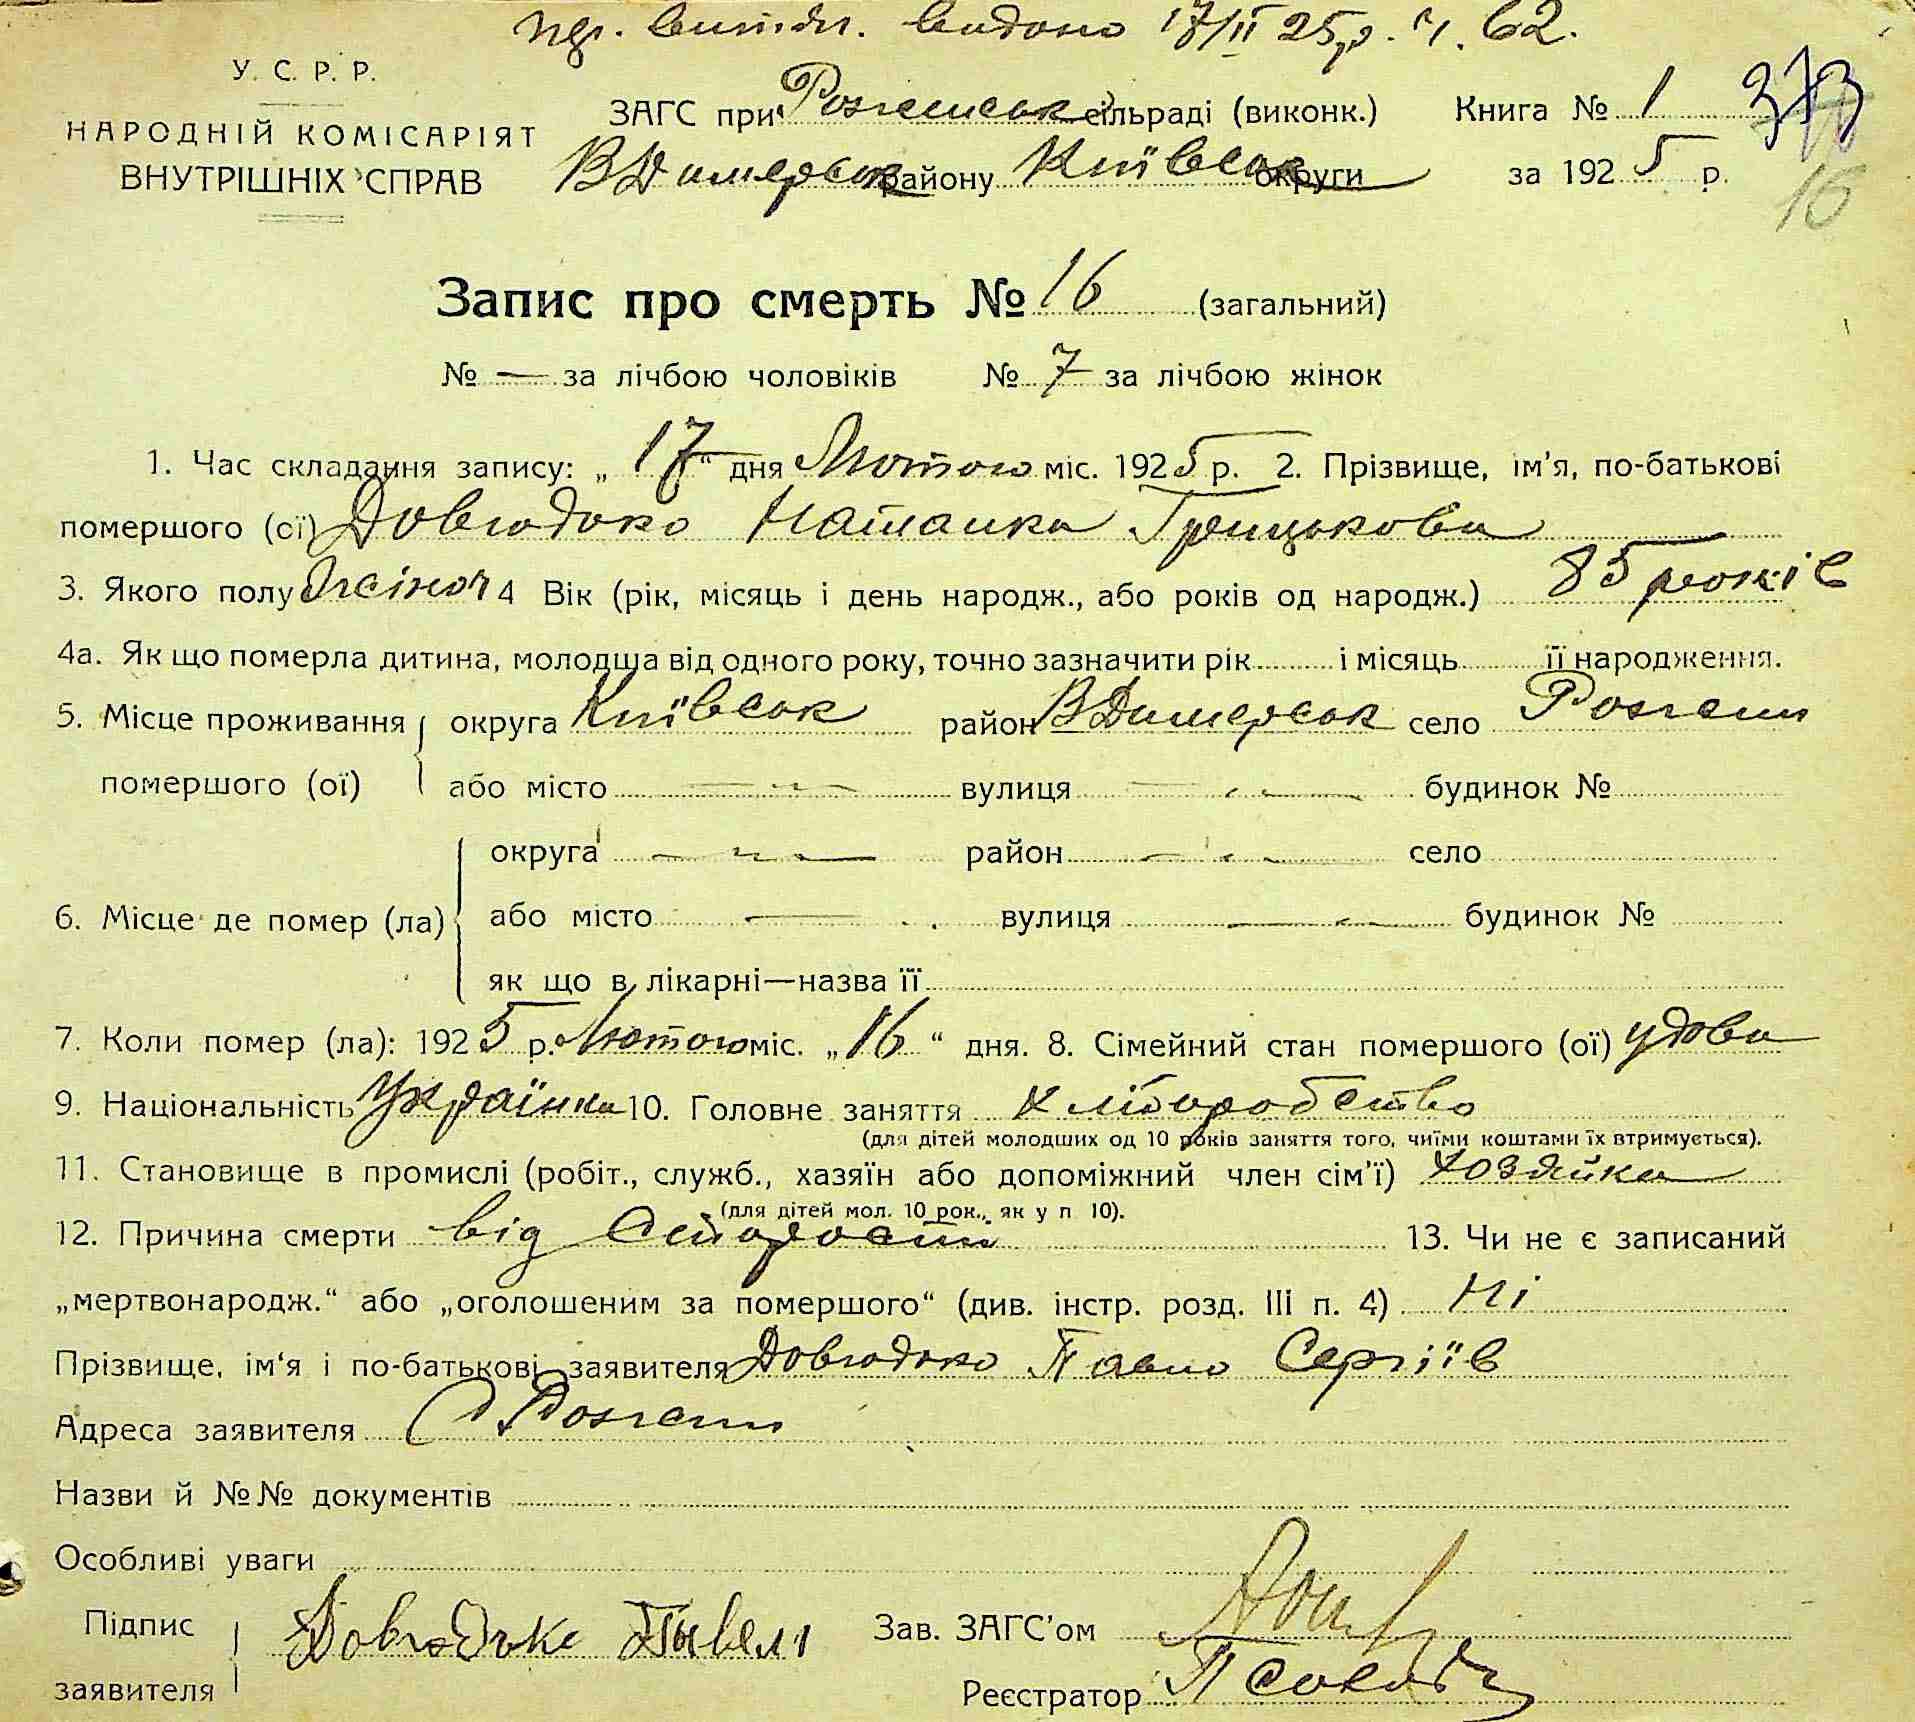 видано 17/II 25 р. ч. 62.
У. С. Р. Р.
НАРОДНІЙ КОМІСАРІЯТ
ВНУТРІШНІХ СПРАВ
ЗАГС при сільраді (виконк.) Книга № 1 373
ВДимерськ району Київськ округи за 1925 р. 16
Запис про смерть № 16 (загальний)
№ — за лічбою чоловіків № 7 за лічбою жінок
1. Час складання запису: „17“ дня Лютого міс. 1925 р. 2. Прізвище, ім'я, по-батькові
помершого (ої) Довгодько Наталка Грицькова
3. Якого полу жіноч 4 Вік (рік, місяць і день народж., або років од народж.) 85 років
4а. Як що померла дитина, молодша від одного року, точно зазначити рік і місяць її народження.
5. Місце проживання округа Київськ район ВДимерськ село
помершого (ої) або місто — „ — вулиця — „ — будинок №
округа — „ — район — „ — село
6. Місце де помер (ла) або місто — вулиця — будинок №
як що в лікарні—назва її
7. Коли помер (ла): 1925 р. Лютого міс. „16“ дня. 8. Сімейний стан помершого (ої) удова
9. Національність Українка 10. Головне заняття хліборобство
(для дітей молодших од 10 років заняття того, чиїми коштами їх втримується).
11. Становище в промислі (робіт., служб., хазяїн або допоміжний член сім'ї) хозяйка
(для дітей мол. 10 рок., як у п 10).
12. Причина смерти від Старости 13. Чи не є записаний
„мертвонародж.“ або „оголошеним за помершого“ (див. інстр. розд. III п. 4) Ні
Прізвище, ім'я і по-батькові заявителя Довгодько Павло Сергіїв
Адреса заявителя
Назви й №№ документів
Особливі уваги
Підпис
заявителя
Зав. ЗАГС'ом
Реєстратор